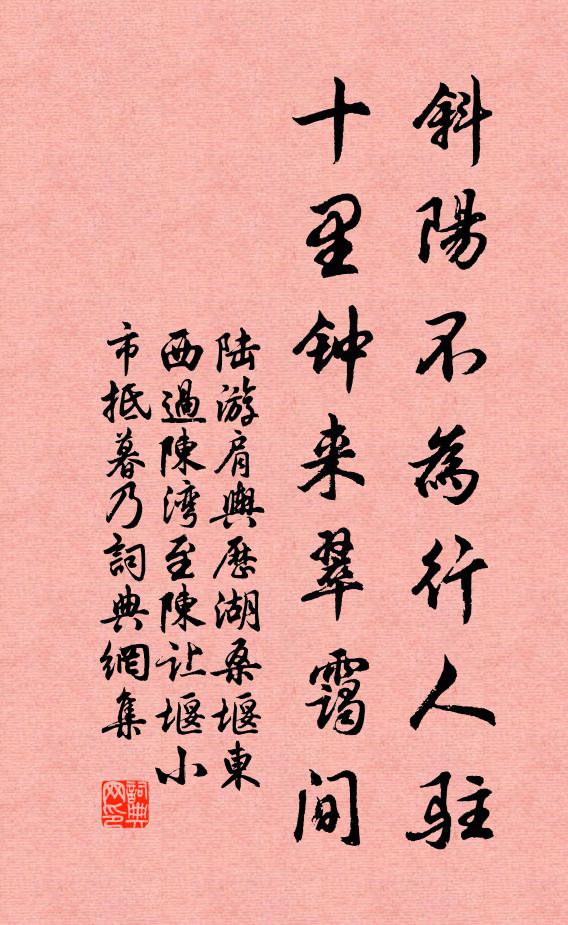 斜陽不為行人駐
十里钟来翠靄間
陆游肩輿歷湖桑堰東
西過陳湾至陳让堰小
市抵暮乃詞典網集
詞典网印